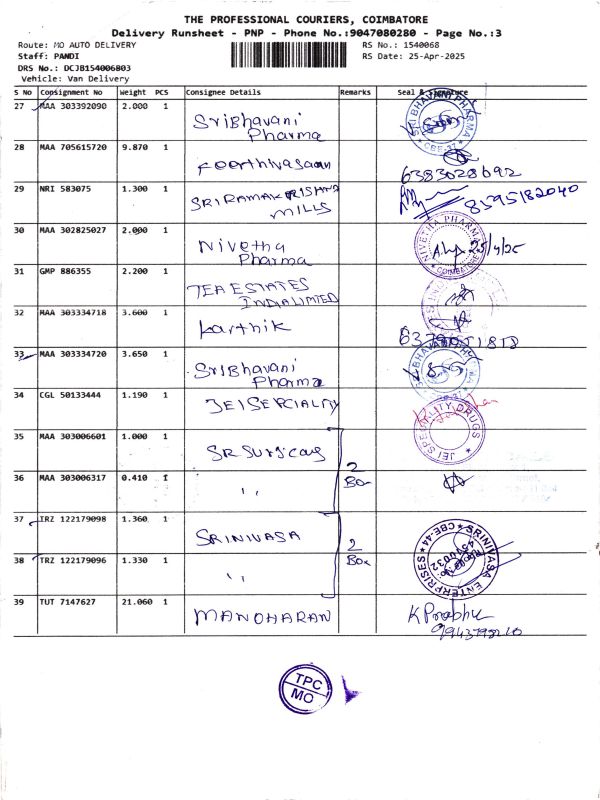 THE PROFESSIONAL COURIERS, COIMBATORE
Delivery Runsheet - PNP - Phone No.:9047080280 - Page No.:3
Route: MO AUTO DELIVERY RS No.: 1540068
Staff: PANDI RS Date: 25-Apr-2025
DRS No.: DCJB154006803
Vehicle: Van Delivery
S No Consignment No Weight PCS Consignee Details Remarks Seal & Signature
27 MAA 303392090 2.000 1
SriBhavani
Pharma
SRI BHAVANI PHARMA
CBE-37
28 MAA 705615720 9.870 1
Keerthivasaan
6383028692
29 NRI 583075 1.300 1
SRIRAMAKRISHNA
MILLS
8595182040
30 MAA 302825027 2.000 1
Nivetha
Pharma
NIVETHA PHARMA
25/4/25
COIMBATORE
31 GMP 886355 2.200 1
TEA ESTATES
INDIA LIMITED
32 MAA 303334718 3.600 1
Karthik
33 MAA 303334720 3.650 1
SriBhavani
Pharma
34 CGL 50133444 1.190 1
JEI SEPCIALITY
JEI SPECIALITY DRUGS
35 MAA 303006601 1.000 1
SR Surgicals
2
Box
36 MAA 303006317 0.410 1
,,
37 TRZ 122179098 1.360 1
SRINIVASA
2
Box
SRINIVASA ENTERPRISES
CBE-44
38 TRZ 122179096 1.330 1
,,
39 TUT 7147627 21.060 1
MANOHARAN
K Prabhu
TPC
MO